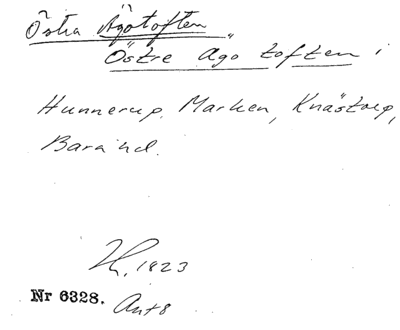 Östra Ågotoften
"Östre Ago toften" i
Hunnerup Marken, Knästorp,
Bara hd.
1823
Nr 6328.